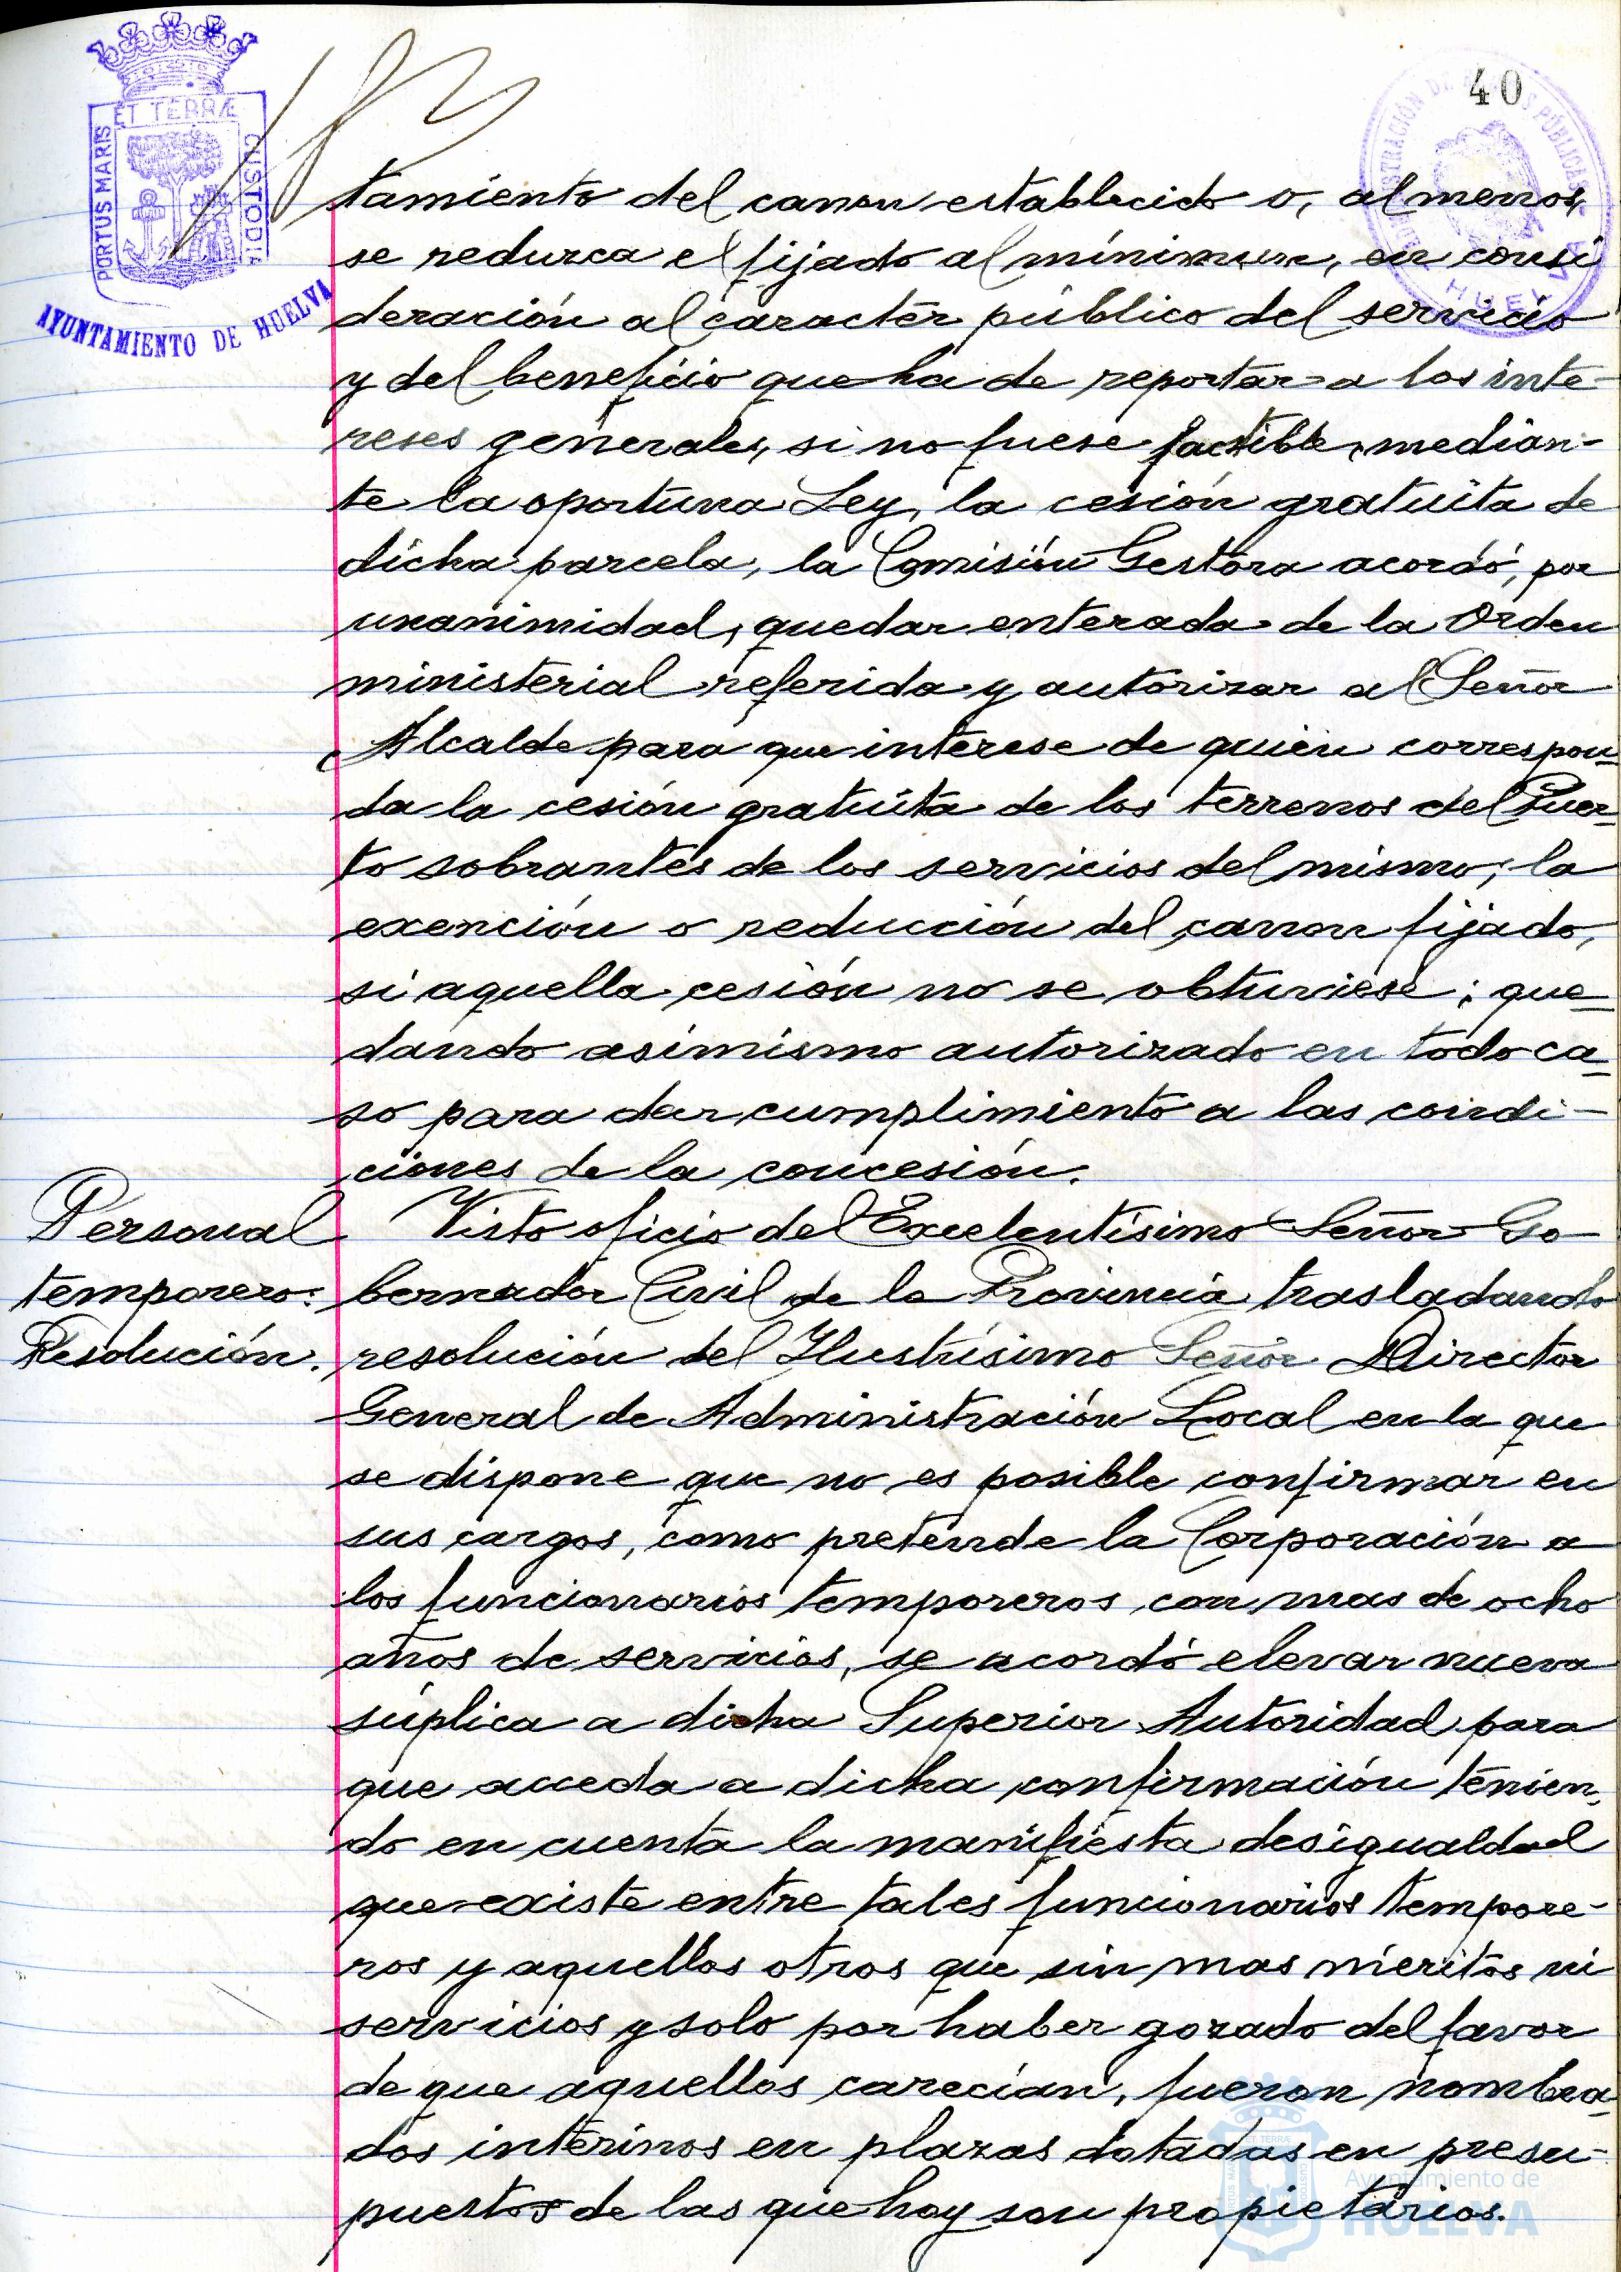 40
ET TERRÆ
PORTUS MARIS
CUSTODIA
AYUNTAMIENTO DE HUELVA
HUELVA
tamiento del canon establecido o, al menos,
se reduzca el fijado al mínimum, en consi
deración al caracter público del servicio
y del beneficio que ha de reportar a los inte-
reses generales, si no fuese factible, median-
te la oportuna Ley, la cesión gratuita de
dicha parcela, la Comisión Gestora acordó, por
unanimidad, quedar enterada de la Orden
ministerial referida y autorizar al Señor
Alcalde para que interese de quien correspon-
da la cesión gratuita de los terrenos del Puer-
to sobrantes de los servicios del mismo; la
exención o reducción del canon fijado,
si aquella cesión no se obtuviese; que-
dando asimismo autorizado en todo ca-
so para dar cumplimiento a las condi-
ciones de la concesión.
Personal
temporero:
Resolución.
Visto oficio del Excelentísimo Señor Go
bernador Civil de la Provincia trasladando
resolución del Ilustrísimo Señor Director
General de Administración Local en la que
se dispone que no es posible confirmar en
sus cargos, como pretende la Corporación a
los funcionarios temporeros con mas de ocho
años de servicios, se acordó elevar nueva
súplica a dicha Superior Autoridad para
que acceda a dicha confirmación tenien-
do en cuenta la manifiesta desigualdad
que existe entre tales funcionarios tempore-
ros y aquellos otros que sin mas méritos ni
servicios y solo por haber gozado del favor
de que aquellos carecían, fueron nombra-
dos interinos en plazas dotadas en presu-
puestos de las que hoy son propietarios.
Ayuntamiento de
HUELVA